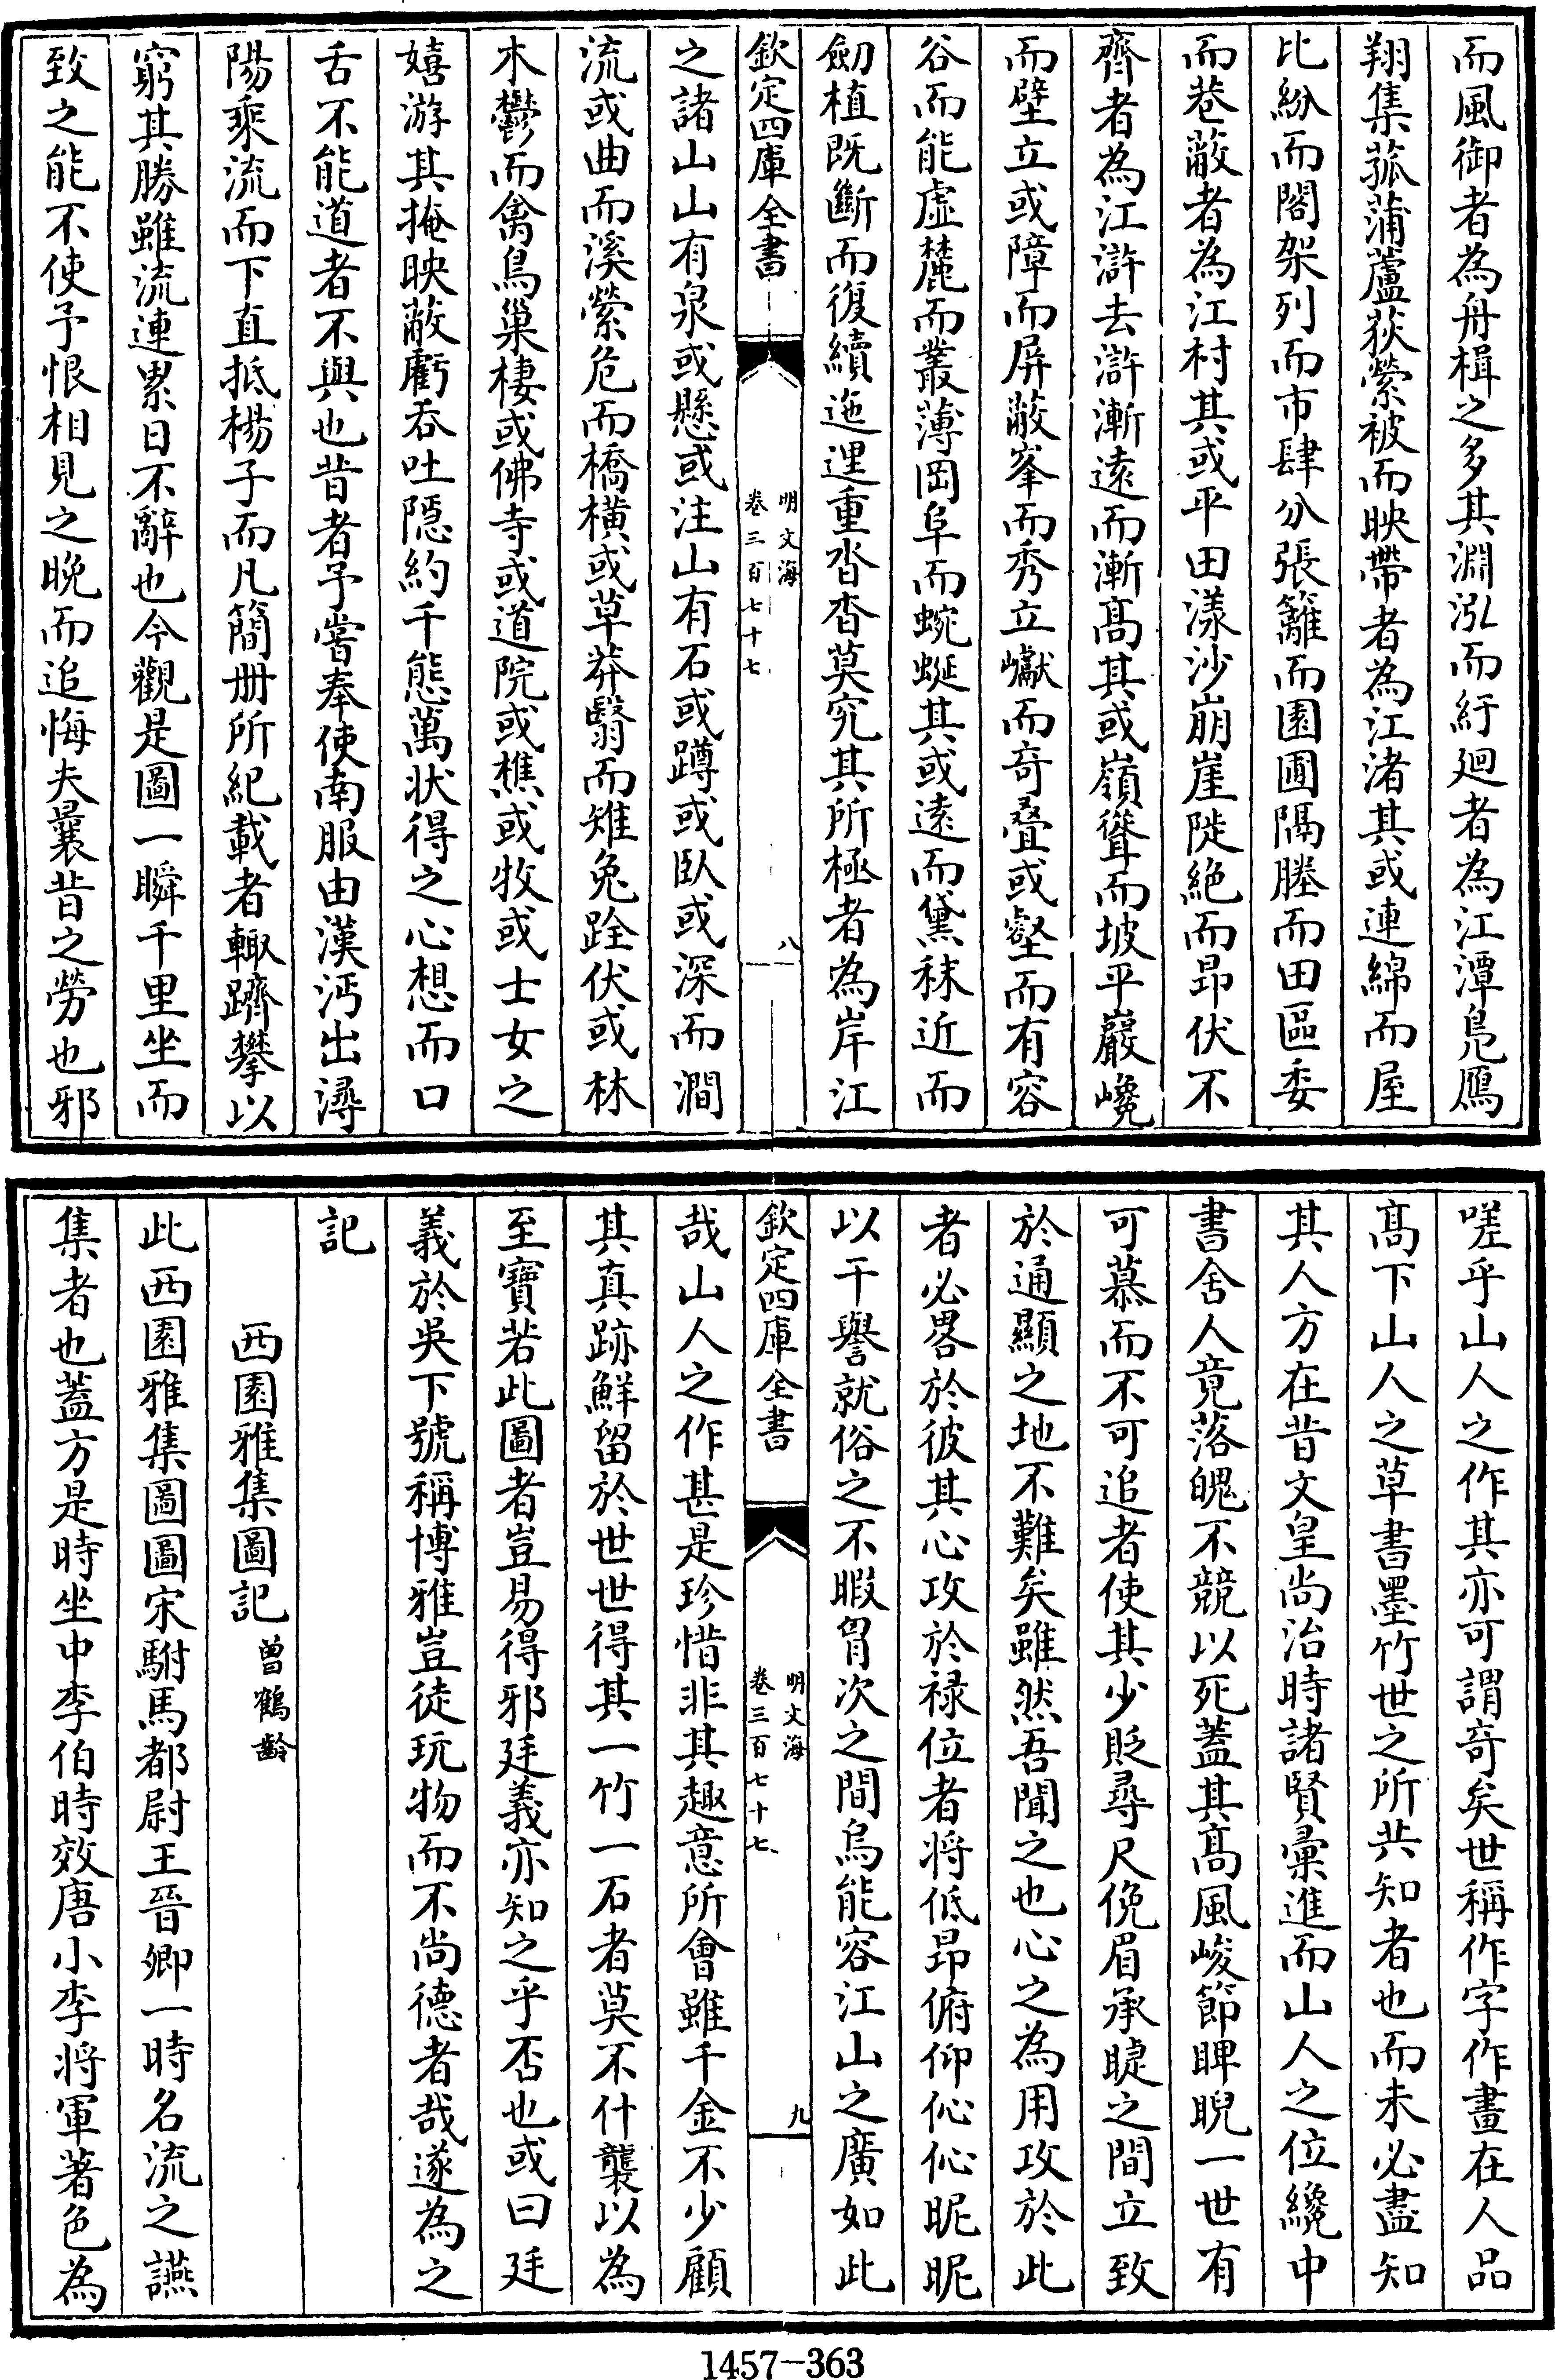 而風御者為舟楫之多其淵泓而紆廻者為江潭鳧鴈
翔集菰蒲蘆荻縈被而映帶者為江渚其或連綿而屋
比紛而閣架列而市肆分張籬而園圃隔塍而田區委
而巷蔽者為江村其或平田漾沙崩崖陡絶而昂伏不
齊者為江滸去滸漸遠而漸髙其或嶺聳而坡平巖巉
而壁立或障而屏蔽峯而秀立巘而竒疊或壑而有容
谷而能虚麓而叢薄岡阜而蜿蜒其或遠而黛秣近而
劒植既斷而復續迤逕重沓杳莫究其所極者為岸江
欽定四庫全書
明文海
卷三百七十七
八
之諸山山有泉或懸或注山有石或蹲或臥或深而澗
流或曲而溪縈危而橋横或草莽翳而雉兔跧伏或林
木鬱而禽鳥巢棲或佛寺或道院或樵或牧或士女之
嬉游其掩映蔽虧吞吐隱約千態萬状得之心想而口
舌不能道者不與也昔者予嘗奉使南服由漢沔出潯
陽乘流而下直抵楊子而凡簡冊所紀載者輙躋攀以
窮其勝雖流連累日不辭也今觀是圖一瞬千里坐而
致之能不使予恨相見之晚而追悔夫曩昔之勞也邪
嗟乎山人之作其亦可謂竒矣世稱作字作畫在人品
髙下山人之草書墨竹世之所共知者也而未必盡知
其人方在昔文皇尚治時諸賢彙進而山人之位纔中
書舍人竟落魄不競以死蓋其髙風峻節睥睨一世有
可慕而不可追者使其少貶尋尺俛眉承睫之間立致
於通顯之地不難矣雖然吾聞之也心之為用攻於此
者必畧於彼其心攻於禄位者将低昂俯仰伈伈昵昵
以干譽就俗之不暇胷次之間烏能容江山之廣如此
欽定四庫全書
明文海
卷三百七十七
九
哉山人之作甚是珍惜非其趣意所會雖千金不少顧
其真跡鮮留於世世得其一竹一石者莫不什襲以為
至寶若此圖者豈易得邪廷義亦知之乎否也或曰廷
義於吳下號稱博雅豈徒玩物而不尚德者哉遂為之
記
西園雅集圖記 曽鶴齡
此西園雅集圖圖宋駙馬都尉王晉卿一時名流之讌
集者也蓋方是時坐中李伯時效唐小李将軍著色為
1457-363